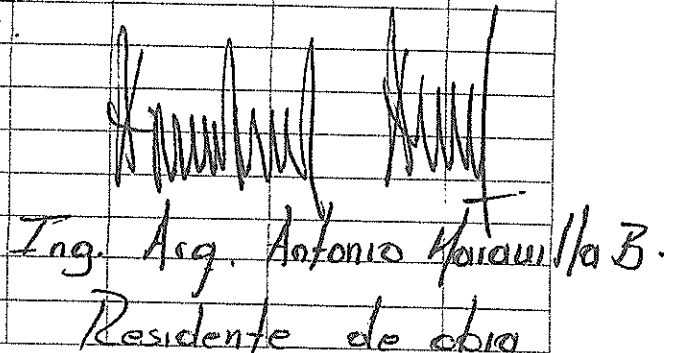 Ing. Arq. Antonio Maraquilla B.
Residente de obra